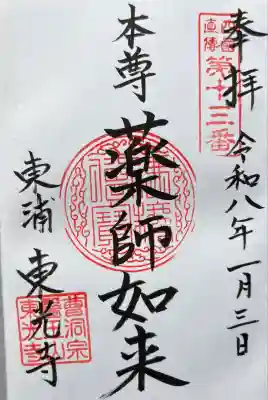 奉拝
令和八年一月三日
第十三番
本尊
薬師如来
東浦
東光寺
曹洞宗